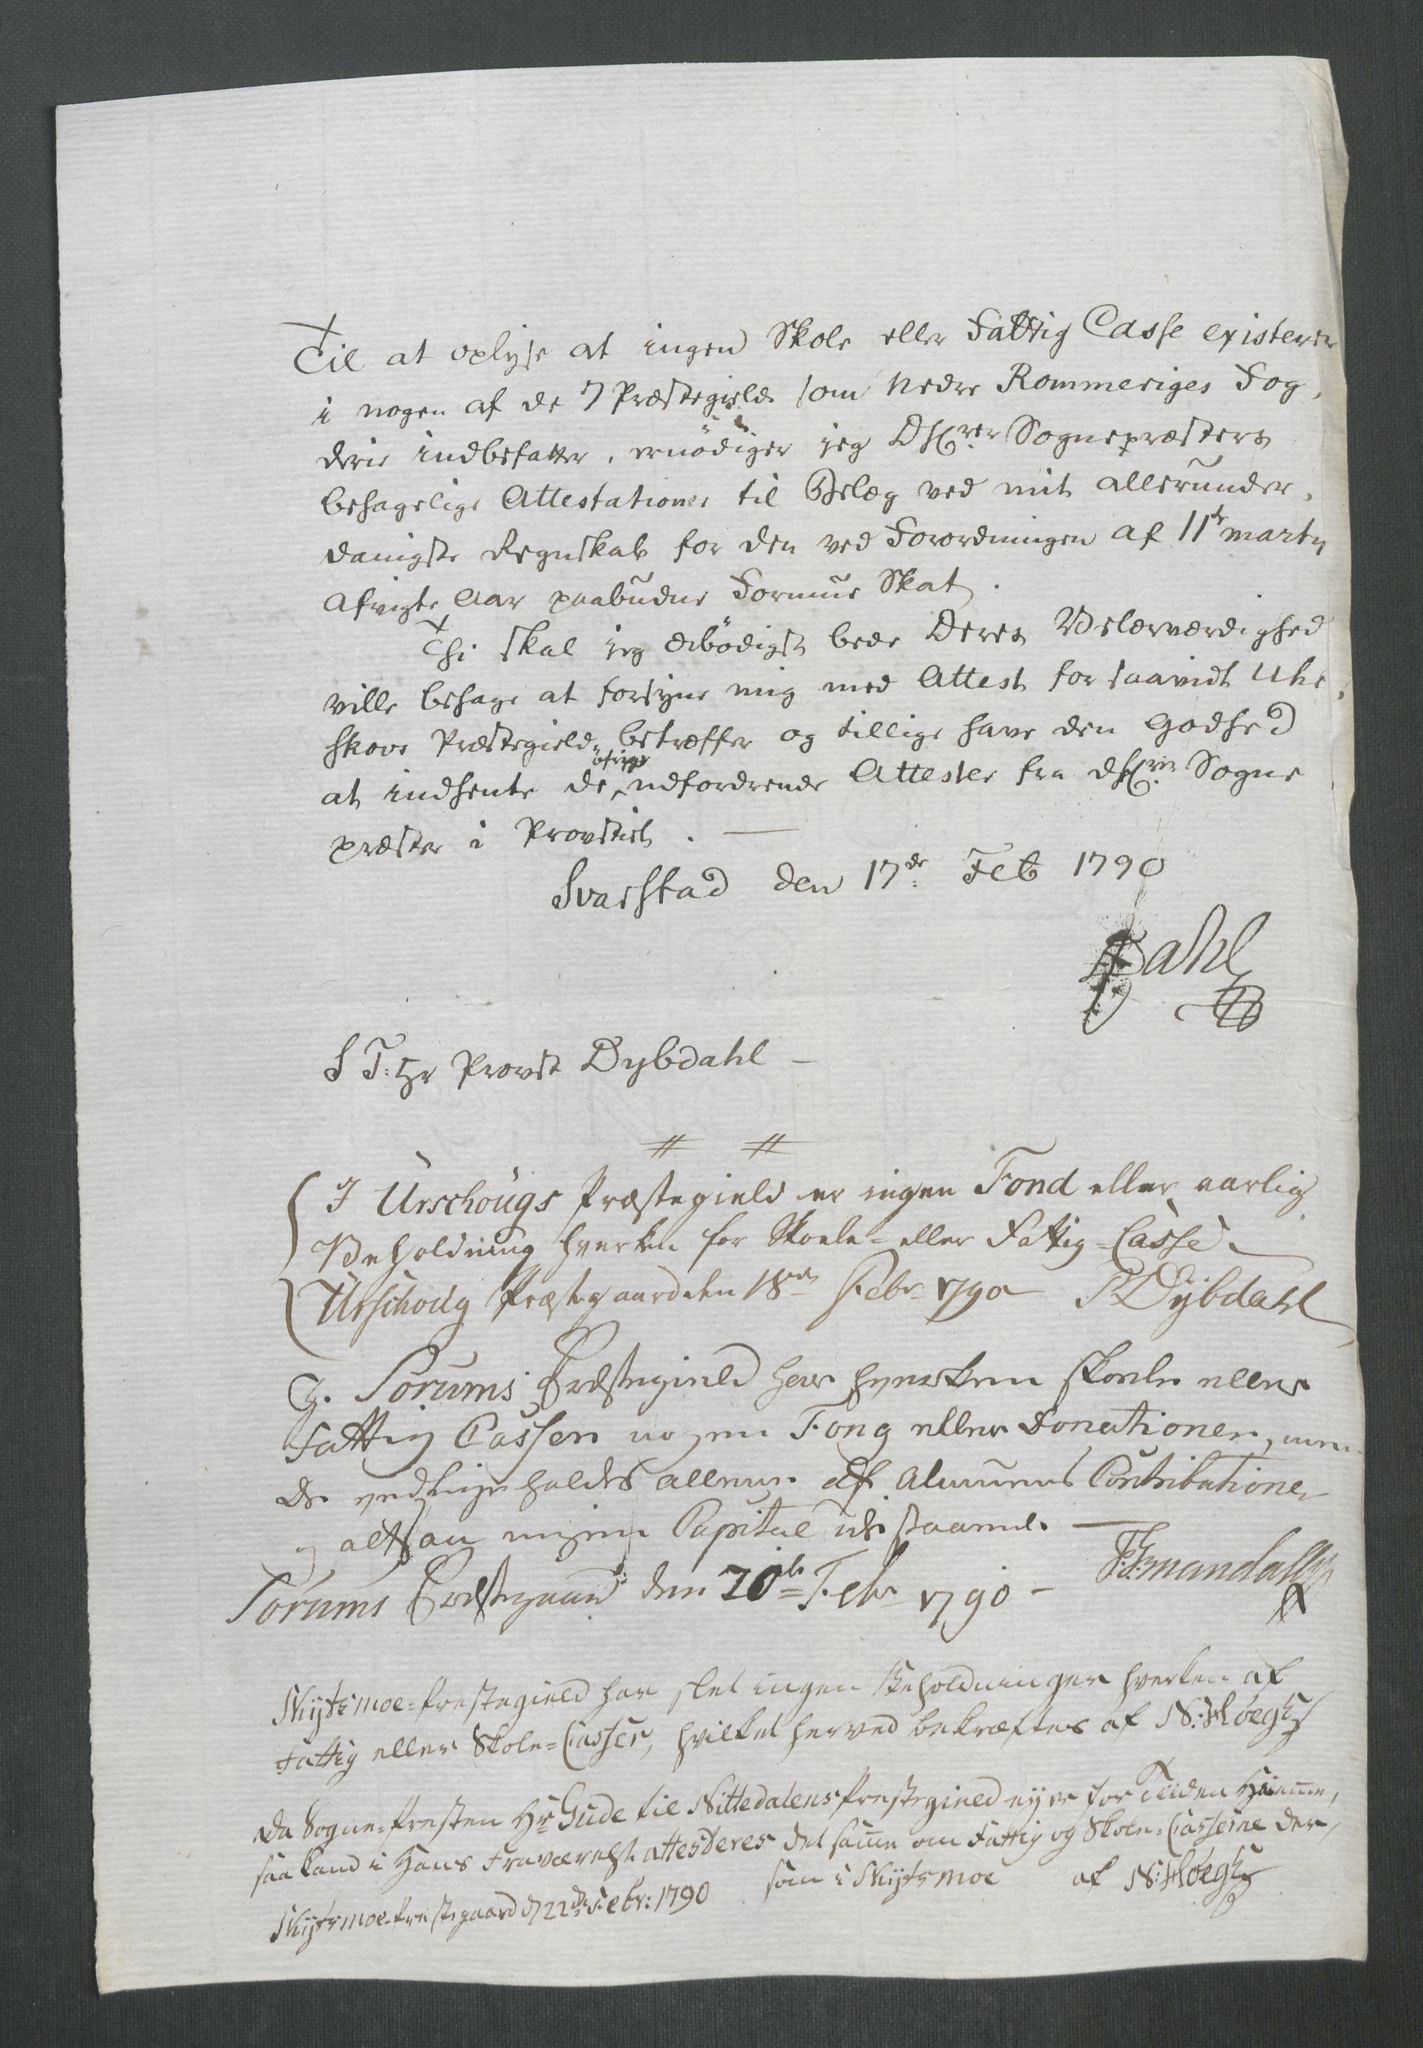 Til at oplyse at ingen Skole eller Fattig Casse existerer
i nogen af de 7 Præstegield som Nedre Rommeriges Fog,
derie indbefatter, ernödiger jeg DHrer Sognepræsters
behagelige Attestationer til Belæg ved mit allerunder,
danigste Regnskab for den ved Forordningen af 11te martz
afvigte Aar paabudne Formue Skat.
Thi skal jeg ærbödigst bede Deres Velærværdighed
ville behage at forsyne mig med Attest for saavidt Uhr,
skovs Præstegield betræffer og tillige have den Godhed
at indhente de öfrige udfordrende Attester fra DHrer Sogne
præster i Provstiet. —
Svarstad den 17de Feb 1790
Dahl
S T: Hr Provst Dybdahl —
I Urschougs Præstegield er ingen Fond eller aarlig
Beholdning hverken for Skole- eller Fattig-Casse.
Urschoug Præstegaard den 18de Febr 1790 Dybdahl
I. Sörums Præstegield har hverken Skole eller
Fattig Cassen nogen Fong eller Donationer, men
de vedligeholdes allene af Almuens Contributioner
og altsaa ingen Capital udestaaende. —
Sörums Præstegaard den 20de Febr 1790 —
Skydsmoe-Prestegield har slet ingen Beholdninger hverken af
Fattig eller Skole-Casser, hvilket herved bekræftes af N: Höegh
Da Sogne-Presten Hr Gude til Nittedalens Prestegield ey er for Tiiden hiemme,
saa kand i Hans Fraværelse attesteres det samme om Fattig og Skole-Casserne der,
som i Skydsmoe af N: Höegh
Skydsmoe-Prestegaard d 22de Febr: 1790